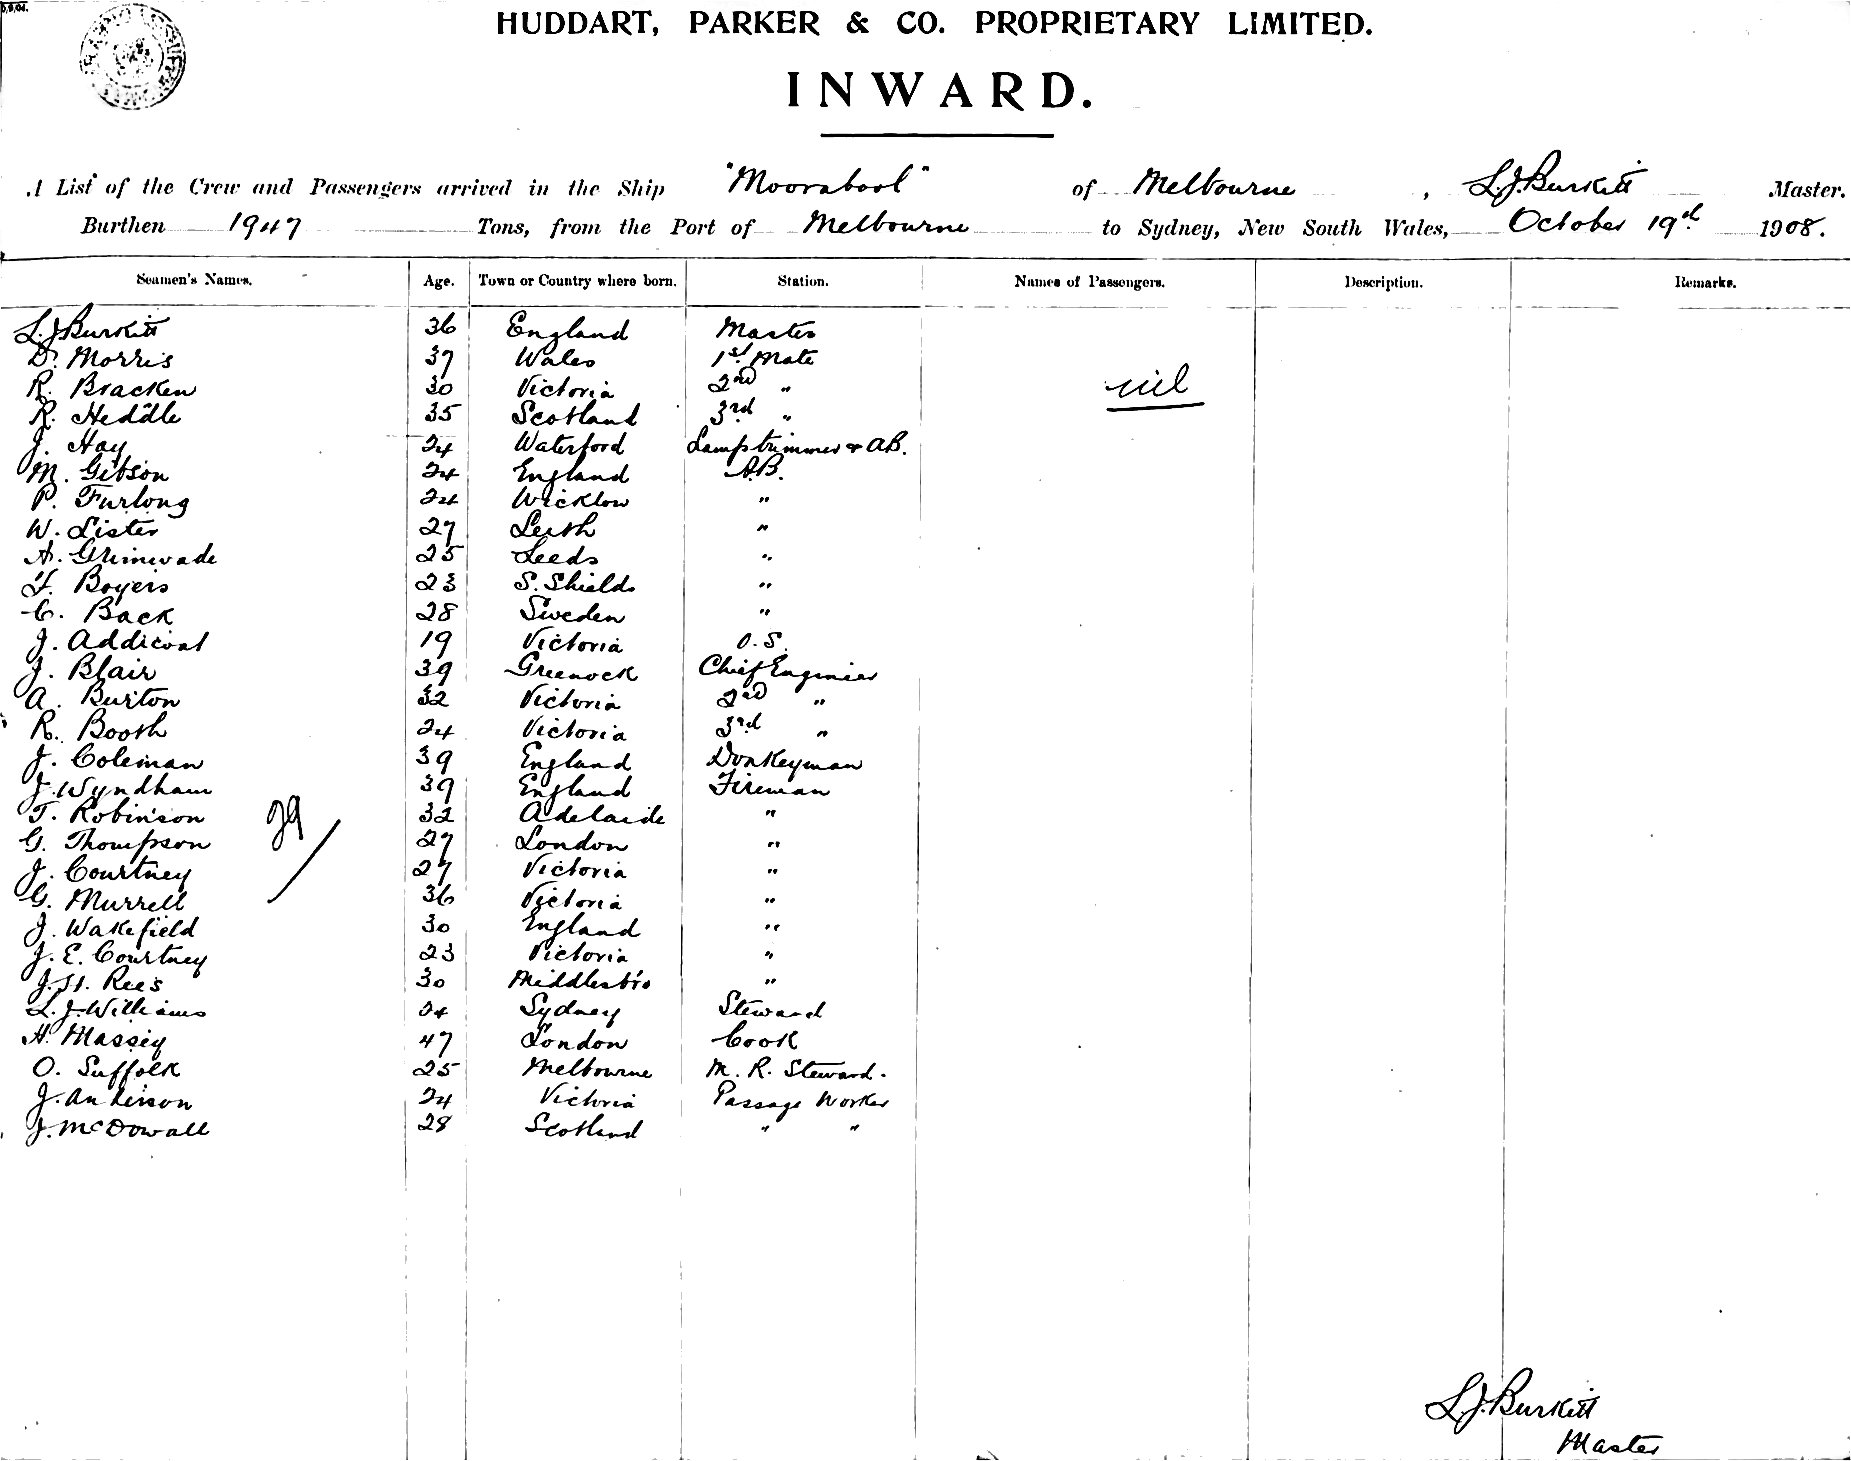 HUDDART, PARKER & CO. PROPRIETARY LIMITED.
INWARD.
A List of the Crew and Passengers arrived in the Ship "Moorabool" of Melbourne, L.J. Burkitt Master.
Burthen 1947 Tons, from the Port of Melbourne to Sydney, New South Wales, October 19th 1908.
Seamen's Names. Age. Town or Country where born. Station. Names of Passengers. Description. Remarks.
L.J. Burkitt 36 England Master
D. Morris 37 Wales 1st Mate
R. Bracken 30 Victoria 2nd " nil
R. Heddle 35 Scotland 3rd "
J. Hay 24 Waterford Lamptrimmer & A.B.
M. Gibson 24 England A.B.
P. Furlong 24 Wicklow "
W. Lister 27 Leith "
A. Grimwade 25 Leeds "
F. Boyers 23 S. Shields "
C. Back 28 Sweden "
J. Addicoat 19 Victoria O.S.
J. Blair 39 Greenock Chief Engineer
A. Burton 32 Victoria 2nd "
R. Booth 24 Victoria 3rd "
J. Coleman 39 England Donkeyman
J. Wyndham 39 England Fireman
T. Robinson 32 Adelaide "
29
G. Thompson 27 London "
J. Courtney 27 Victoria "
G. Murrell 36 Victoria "
J. Wakefield 30 England "
J. E. Courtney 23 Victoria "
J. H. Rees 30 Middlesbro "
L. J. Williams 24 Sydney Steward
H. Massey 47 London Cook
O. Suffolk 25 Melbourne M. R. Steward.
J. Anderson 24 Victoria Passage Worker
J. McDowall 28 Scotland " "
L.J. Burkitt
Master